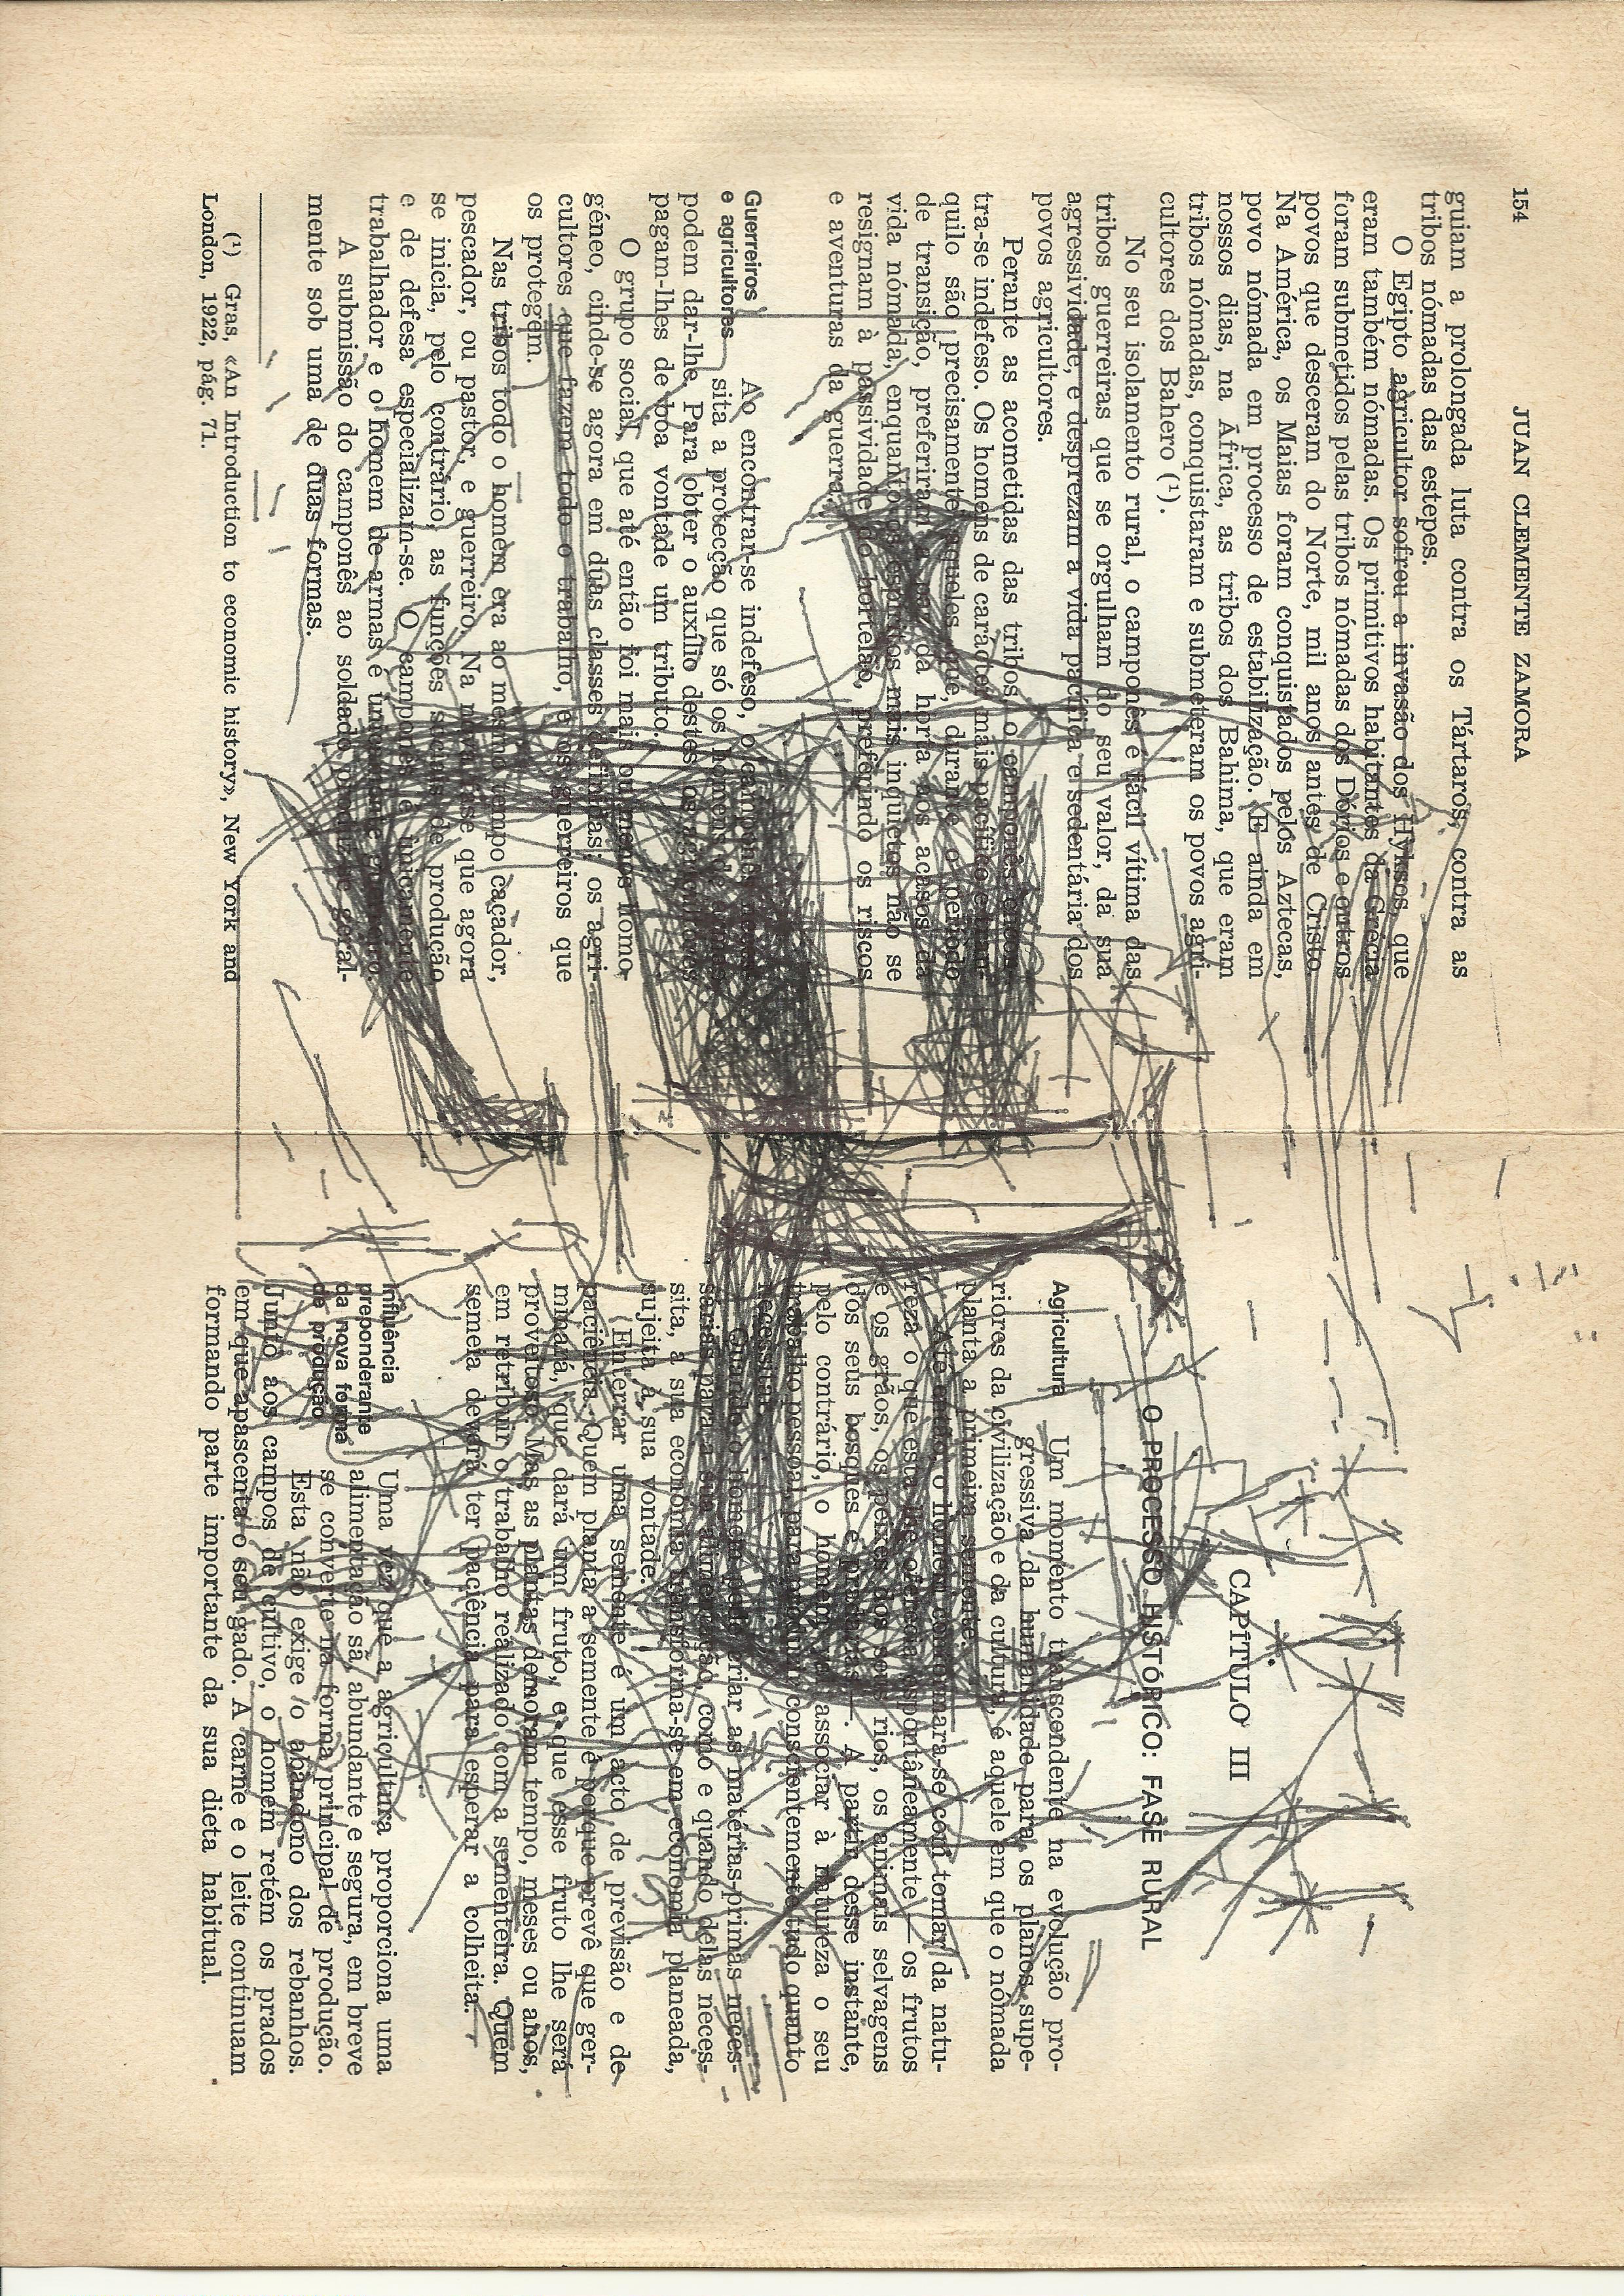 154 JUAN CLEMENTE ZAMORA
guiam a prolongada luta contra os Tártaros, contra as
tribos nómadas das estepes.
O Egipto agricultor sofreu a invasão dos Hyksos, que
eram também nómadas. Os primitivos habitantes da Grécia
foram submetidos pelas tribos nómadas dos Dórios e outros
povos que desceram do Norte, mil anos antes de Cristo.
Na América, os Maias foram conquistados pelos Aztecas,
povo nómada em processo de estabilização. E ainda em
nossos dias, na África, as tribos dos Bahima, que eram
tribos nómadas, conquistaram e submeteram os povos agri-
cultores dos Bahero (¹).
No seu isolamento rural, o camponês é fácil vítima das
tribos guerreiras que se orgulham do seu valor, da sua
agressividade, e desprezam a vida pacífica e sedentária dos
povos agricultores.
Perante as acometidas das tribos, o camponês encon-
tra-se indefeso. Os homens de carácter mais pacífico e tran-
quilo são precisamente aqueles que, durante o período
de transição, preferiram a paz da horta aos acasos da
vida nómada, enquanto os espíritos mais inquietos não se
resignam à passividade do hortelão, preferindo os riscos
e aventuras da guerra.
Guerreiros
e agricultores
Ao encontrar-se indefeso, o camponês neces-
sita a protecção que só os homens de armas
podem dar-lhe. Para obter o auxílio destes, os agricultores
pagam-lhes de boa vontade um tributo.
O grupo social, que até então foi mais ou menos homo-
géneo, cinde-se agora em duas classes definidas: os agri-
cultores que fazem todo o trabalho, e os guerreiros que
os protegem.
Nas tribos todo o homem era ao mesmo tempo caçador,
pescador, ou pastor, e guerreiro. Na nova fase que agora
se inicia, pelo contrário, as funções sociais de produção
e de defesa especializam-se. O camponês é ùnicamente
trabalhador e o homem de armas é ùnicamente guerreiro.
A submissão do camponês ao soldado produz-se geral-
mente sob uma de duas formas.
(¹) Gras, «An Introduction to economic history», New York and
London, 1922, pág. 71.
CAPÍTULO III
O PROCESSO HISTÓRICO: FASE RURAL
Agricultura
Um momento transcendente na evolução pro-
gressiva da humanidade para os planos supe-
riores da civilização e da cultura, é aquele em que o nómada
planta a primeira semente.
Até então, o homem conformara-se com tomar da natu-
reza o que esta lhe oferecia espontâneamente — os frutos
e os grãos, os peixes dos seus rios, os animais selvagens
dos seus bosques e pradarias —. A partir desse instante,
pelo contrário, o homem vai associar à natureza o seu
trabalho pessoal, para produzir conscientemente tudo quanto
necessitar.
Quando o homem pode criar as matérias-primas neces-
sárias para a sua alimentação, como e quando delas neces-
sita, a sua economia transforma-se em economia planeada,
sujeita à sua vontade.
Enterrar uma semente é um acto de previsão e de
paciência. Quem planta a semente é porque prevê que ger-
minará, que dará um fruto, e que esse fruto lhe será
proveitoso. Mas as plantas demoram tempo, meses ou anos,
em retribuir o trabalho realizado com a sementeira. Quem
semeia deverá ter paciência para esperar a colheita.
Influência
preponderante
da nova forma
de produção
Uma vez que a agricultura proporciona uma
alimentação sã, abundante e segura, em breve
se converte na forma principal de produção.
Esta não exige o abandono dos rebanhos.
Junto aos campos de cultivo, o homem retém os prados
em que apascenta o seu gado. A carne e o leite continuam
formando parte importante da sua dieta habitual.